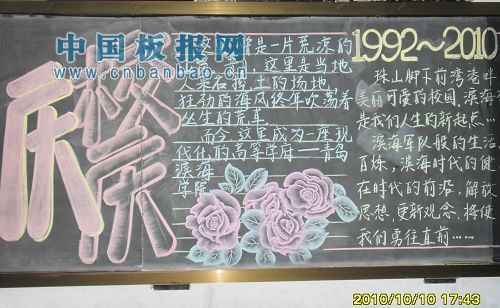 中国板报网
www.cnbanbao.cn
庆
是一片荒凉的
这里是当地
人采石挖土的场地
狂劲的海风终年吹荡着
丛生的荒草
而今这里成为一座现
代化的高等学府——青岛
滨海
学院
1992~2010
珠山脚下前湾港畔
美丽可爱的校园,滨海
是我们人生的新起点…
滨海军队般的生活
百炼,滨海时代的健
在时代的前沿,解放
思想,更新观念,将使
我们勇往直前……
2010/10/10 17:43